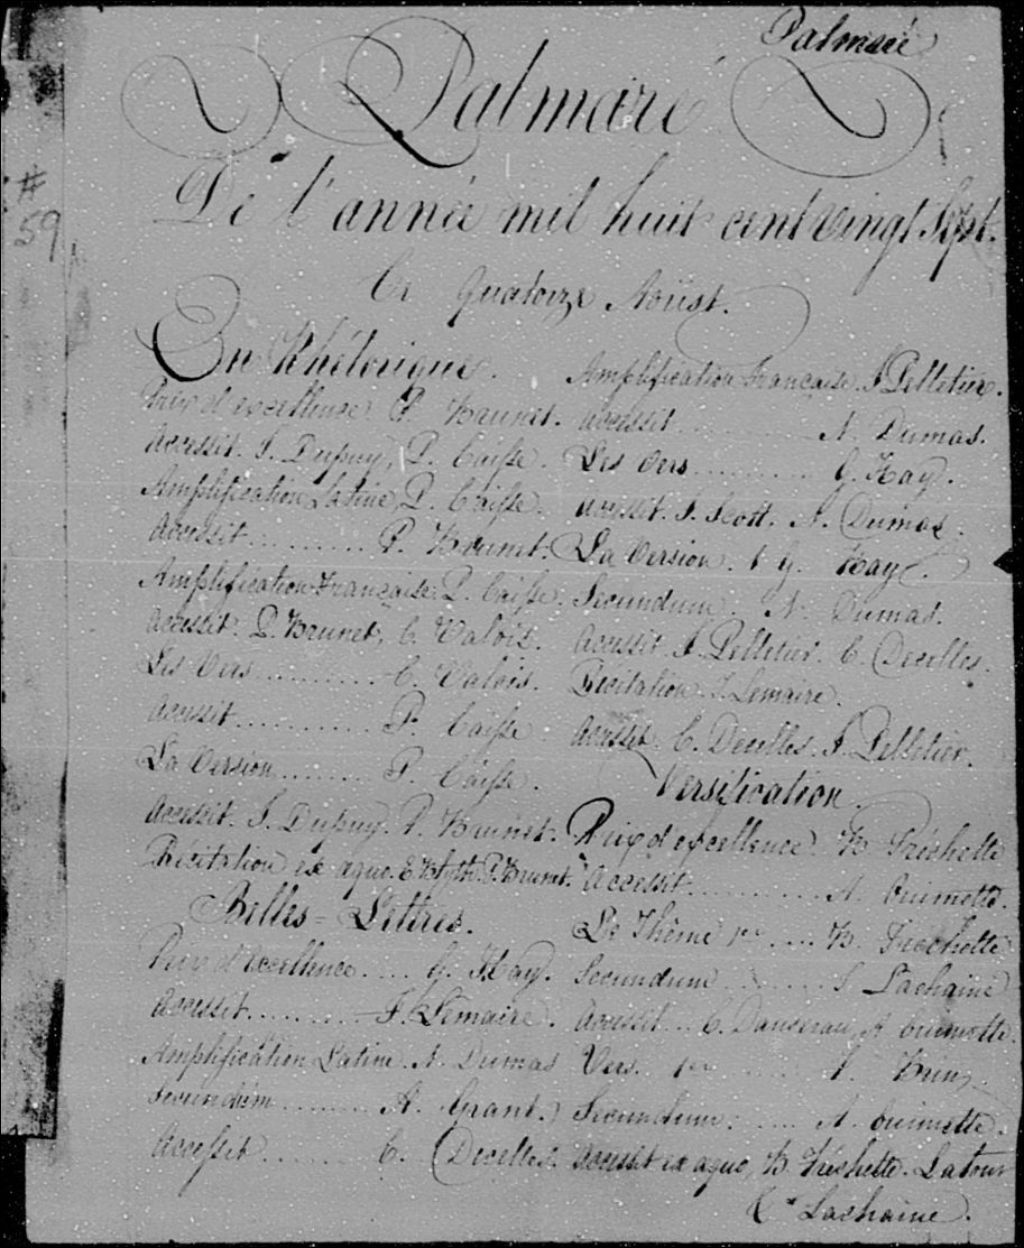 Palmaré
Palmaré
# 59
De l'année mil huit cent vingt Sept.
Ce Quatorze Aoüst.
En Rhétorique.
Prix d'excellence P. Brunet.
Accessit. J. Dupuy, P. Caisse.
Amplification Latine, P. Caisse.
Accessit........... P. Brunet.
Amplification Française. P. Caisse.
Accessit. P. Brunet, C. Valois.
Les Vers........... C. Valois.
Accessit........... P. Caisse
La Version........ P. Caisse.
Accessit. J. Dupuy. P. Brunet.
Récitation ex æquo. E. Blyth. P. Brunet.
Belles=Lettres.
Prix d'excellence.... G. Hay.
Accessit........... F. Lemaire.
Amplification Latine. N. Dumas
Secundùm......... A. Grant.
Accessit.......... C. Decelles.
Amplification Française. J. Pelletier.
Accessit............ N. Dumas.
Les Vers........... G. Hay.
Accessit. J. Scott. N. Dumas.
La Version. 1 G. Hay.
Secundum. N. Dumas.
Accessit J. Pelletier. C. Decelles.
Récitation. F. Lemaire.
Accessit. C. Decelles. J. Pelletier.
Versification.
Prix d'excellence B. Fréchette
Accessit............ A. Ouimette.
Le Thême 1er .... B. Frechette
Secundum ......... Lachaine
Accessit... C. Dansereau, A. Ouimette.
Vers. 1er
Secundum. ..... A. Ouimette.
Accessit ex æquo, B. Fréchette. Latour
& Lachaine.